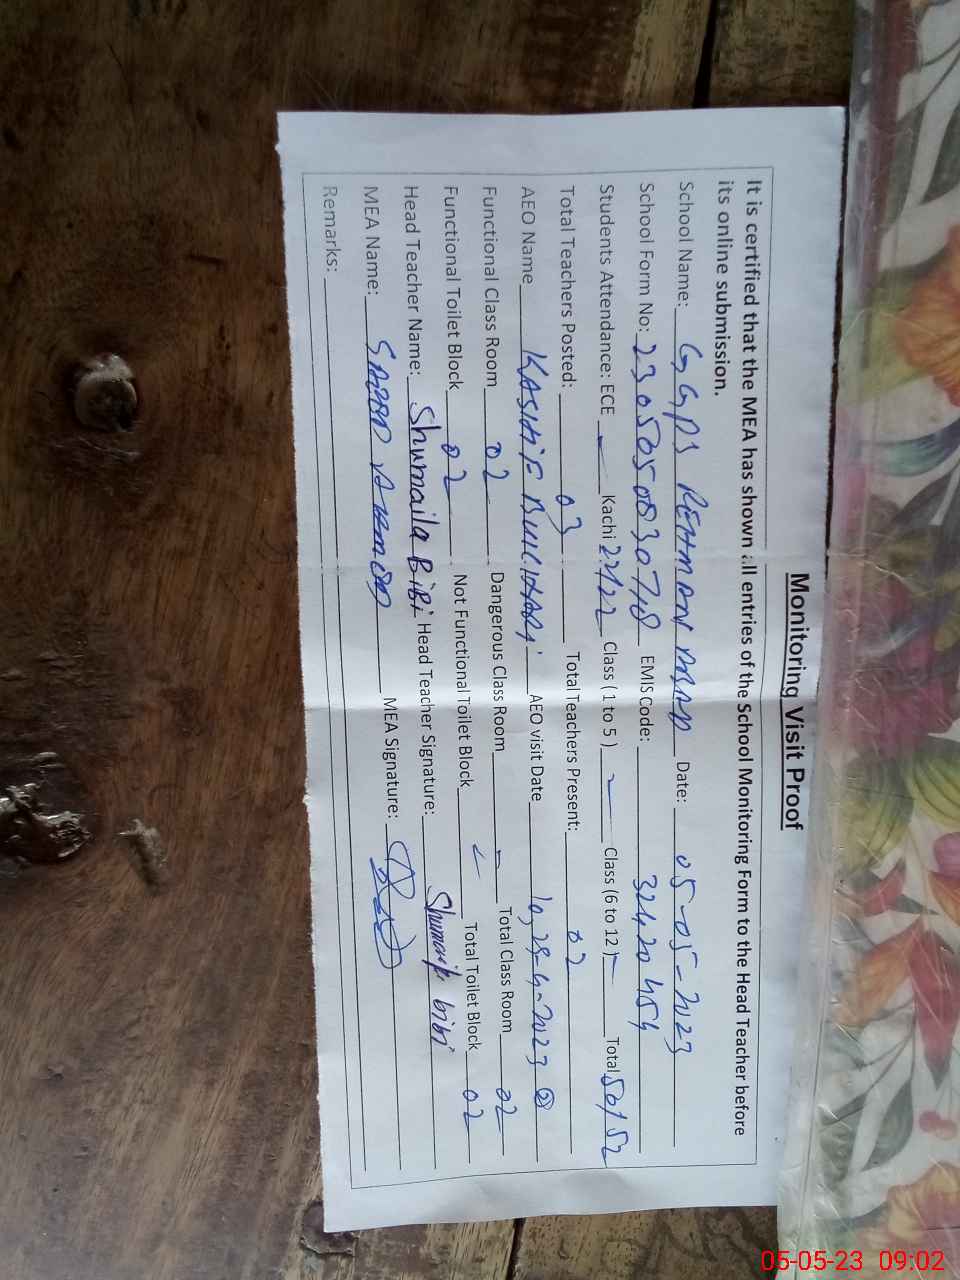 Monitoring Visit Proof
It is certified that the MEA has shown all entries of the School Monitoring Form to the Head Teacher before
its online submission.
School Name: GGPS REHMAN Date: 05-05-2023
School Form No: EMIS Code: 32420454
Students Attendance: ECE — Kachi Class ( 1 to 5 ) — Class (6 to 12 ) — Total 50/52
Total Teachers Posted: 03 Total Teachers Present: 02
AEO Name KASHIF BUKHARI AEO visit Date 10,28-4-2023
Functional Class Room 02 Dangerous Class Room - Total Class Room 02
Functional Toilet Block 02 Not Functional Toilet Block Total Toilet Block 02
Head Teacher Name: Shumaila BiBi Head Teacher Signature: Shumaila bibi
MEA Name: MEA Signature:
Remarks:
05-05-23 09:02